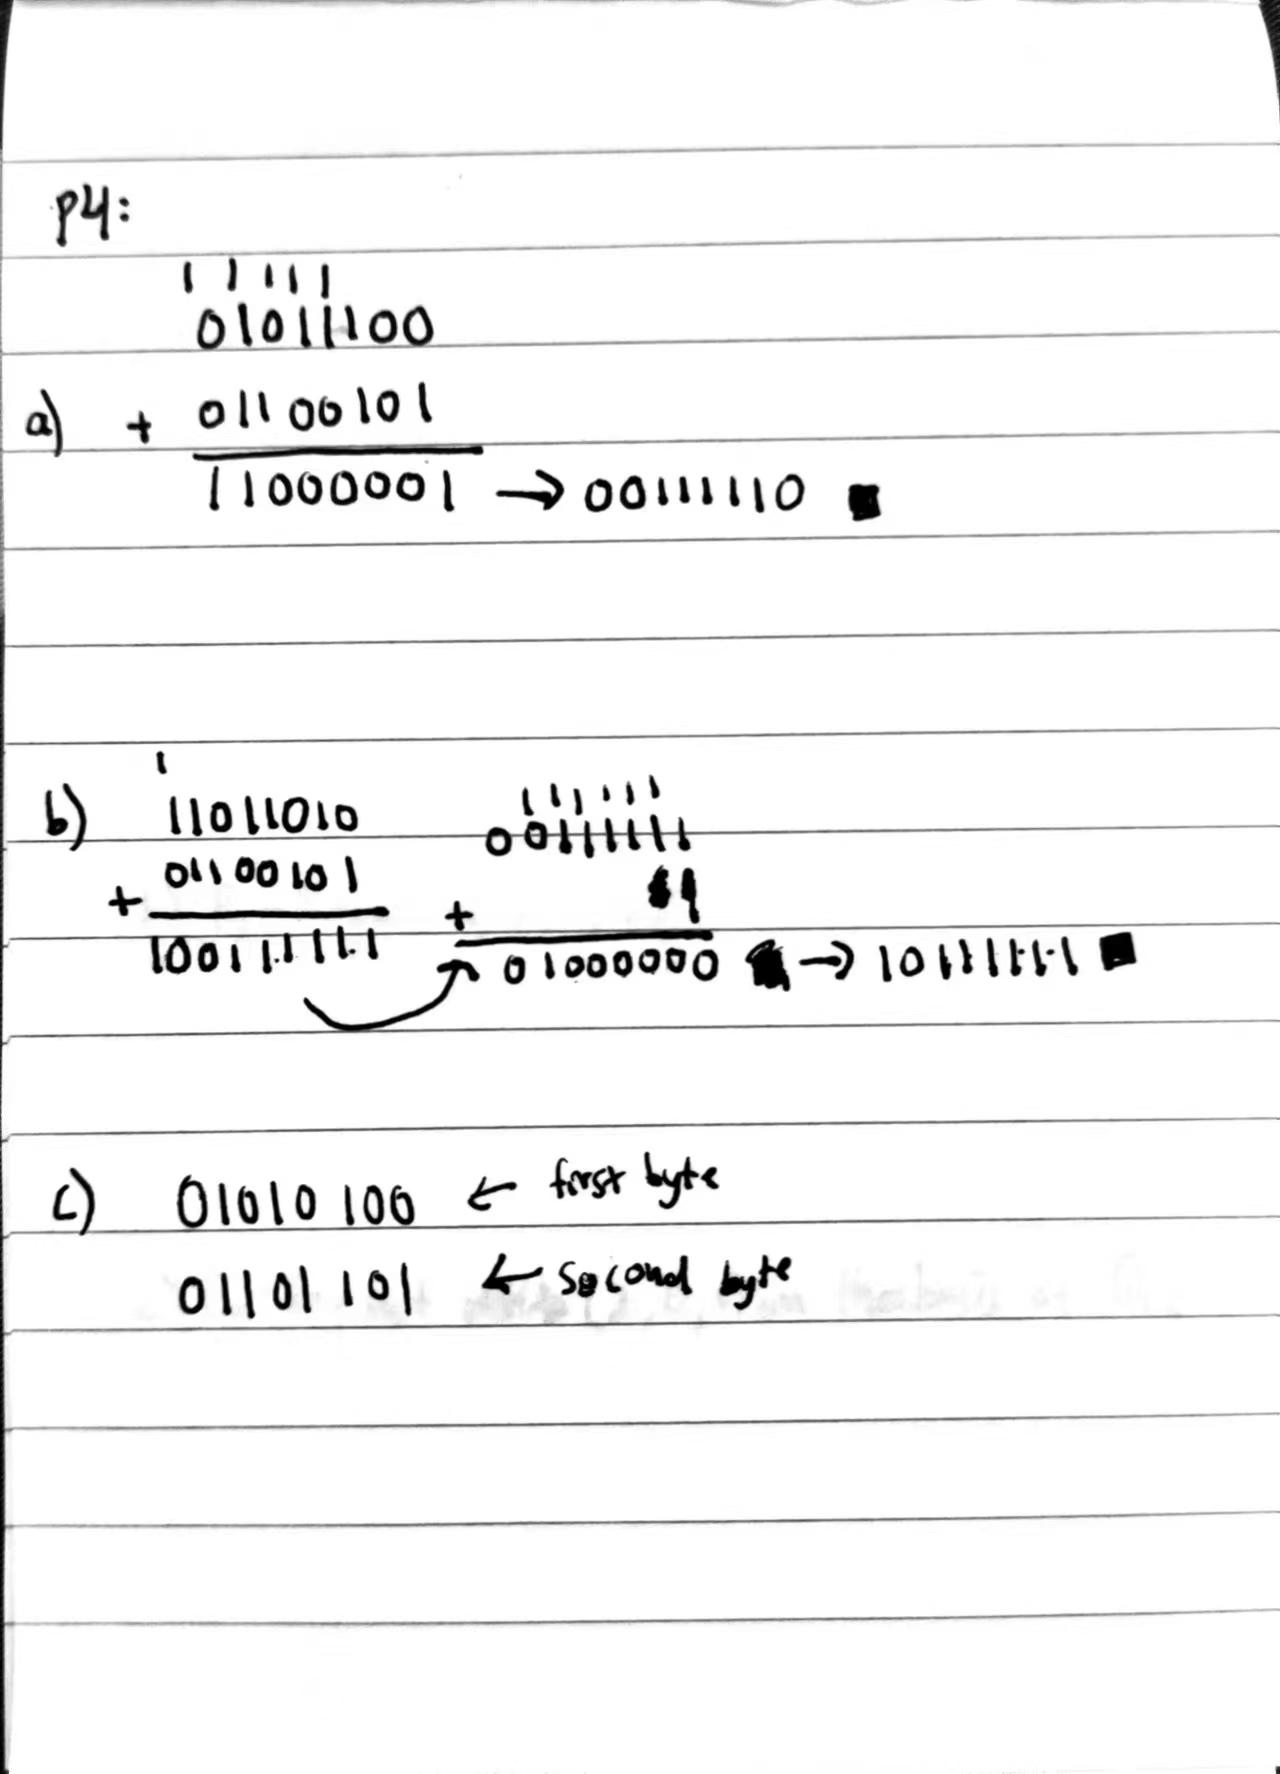 P4:
1 1 1 1 1
01011100
a) + 01100101
11000001 → 00111110
1
b) 11011010
+ 01100101
100111111
1 1 1 1 1 1
00111111
+ 1
01000000 → 10111111
c) 01010100 ← first byte
01101101 ← second byte